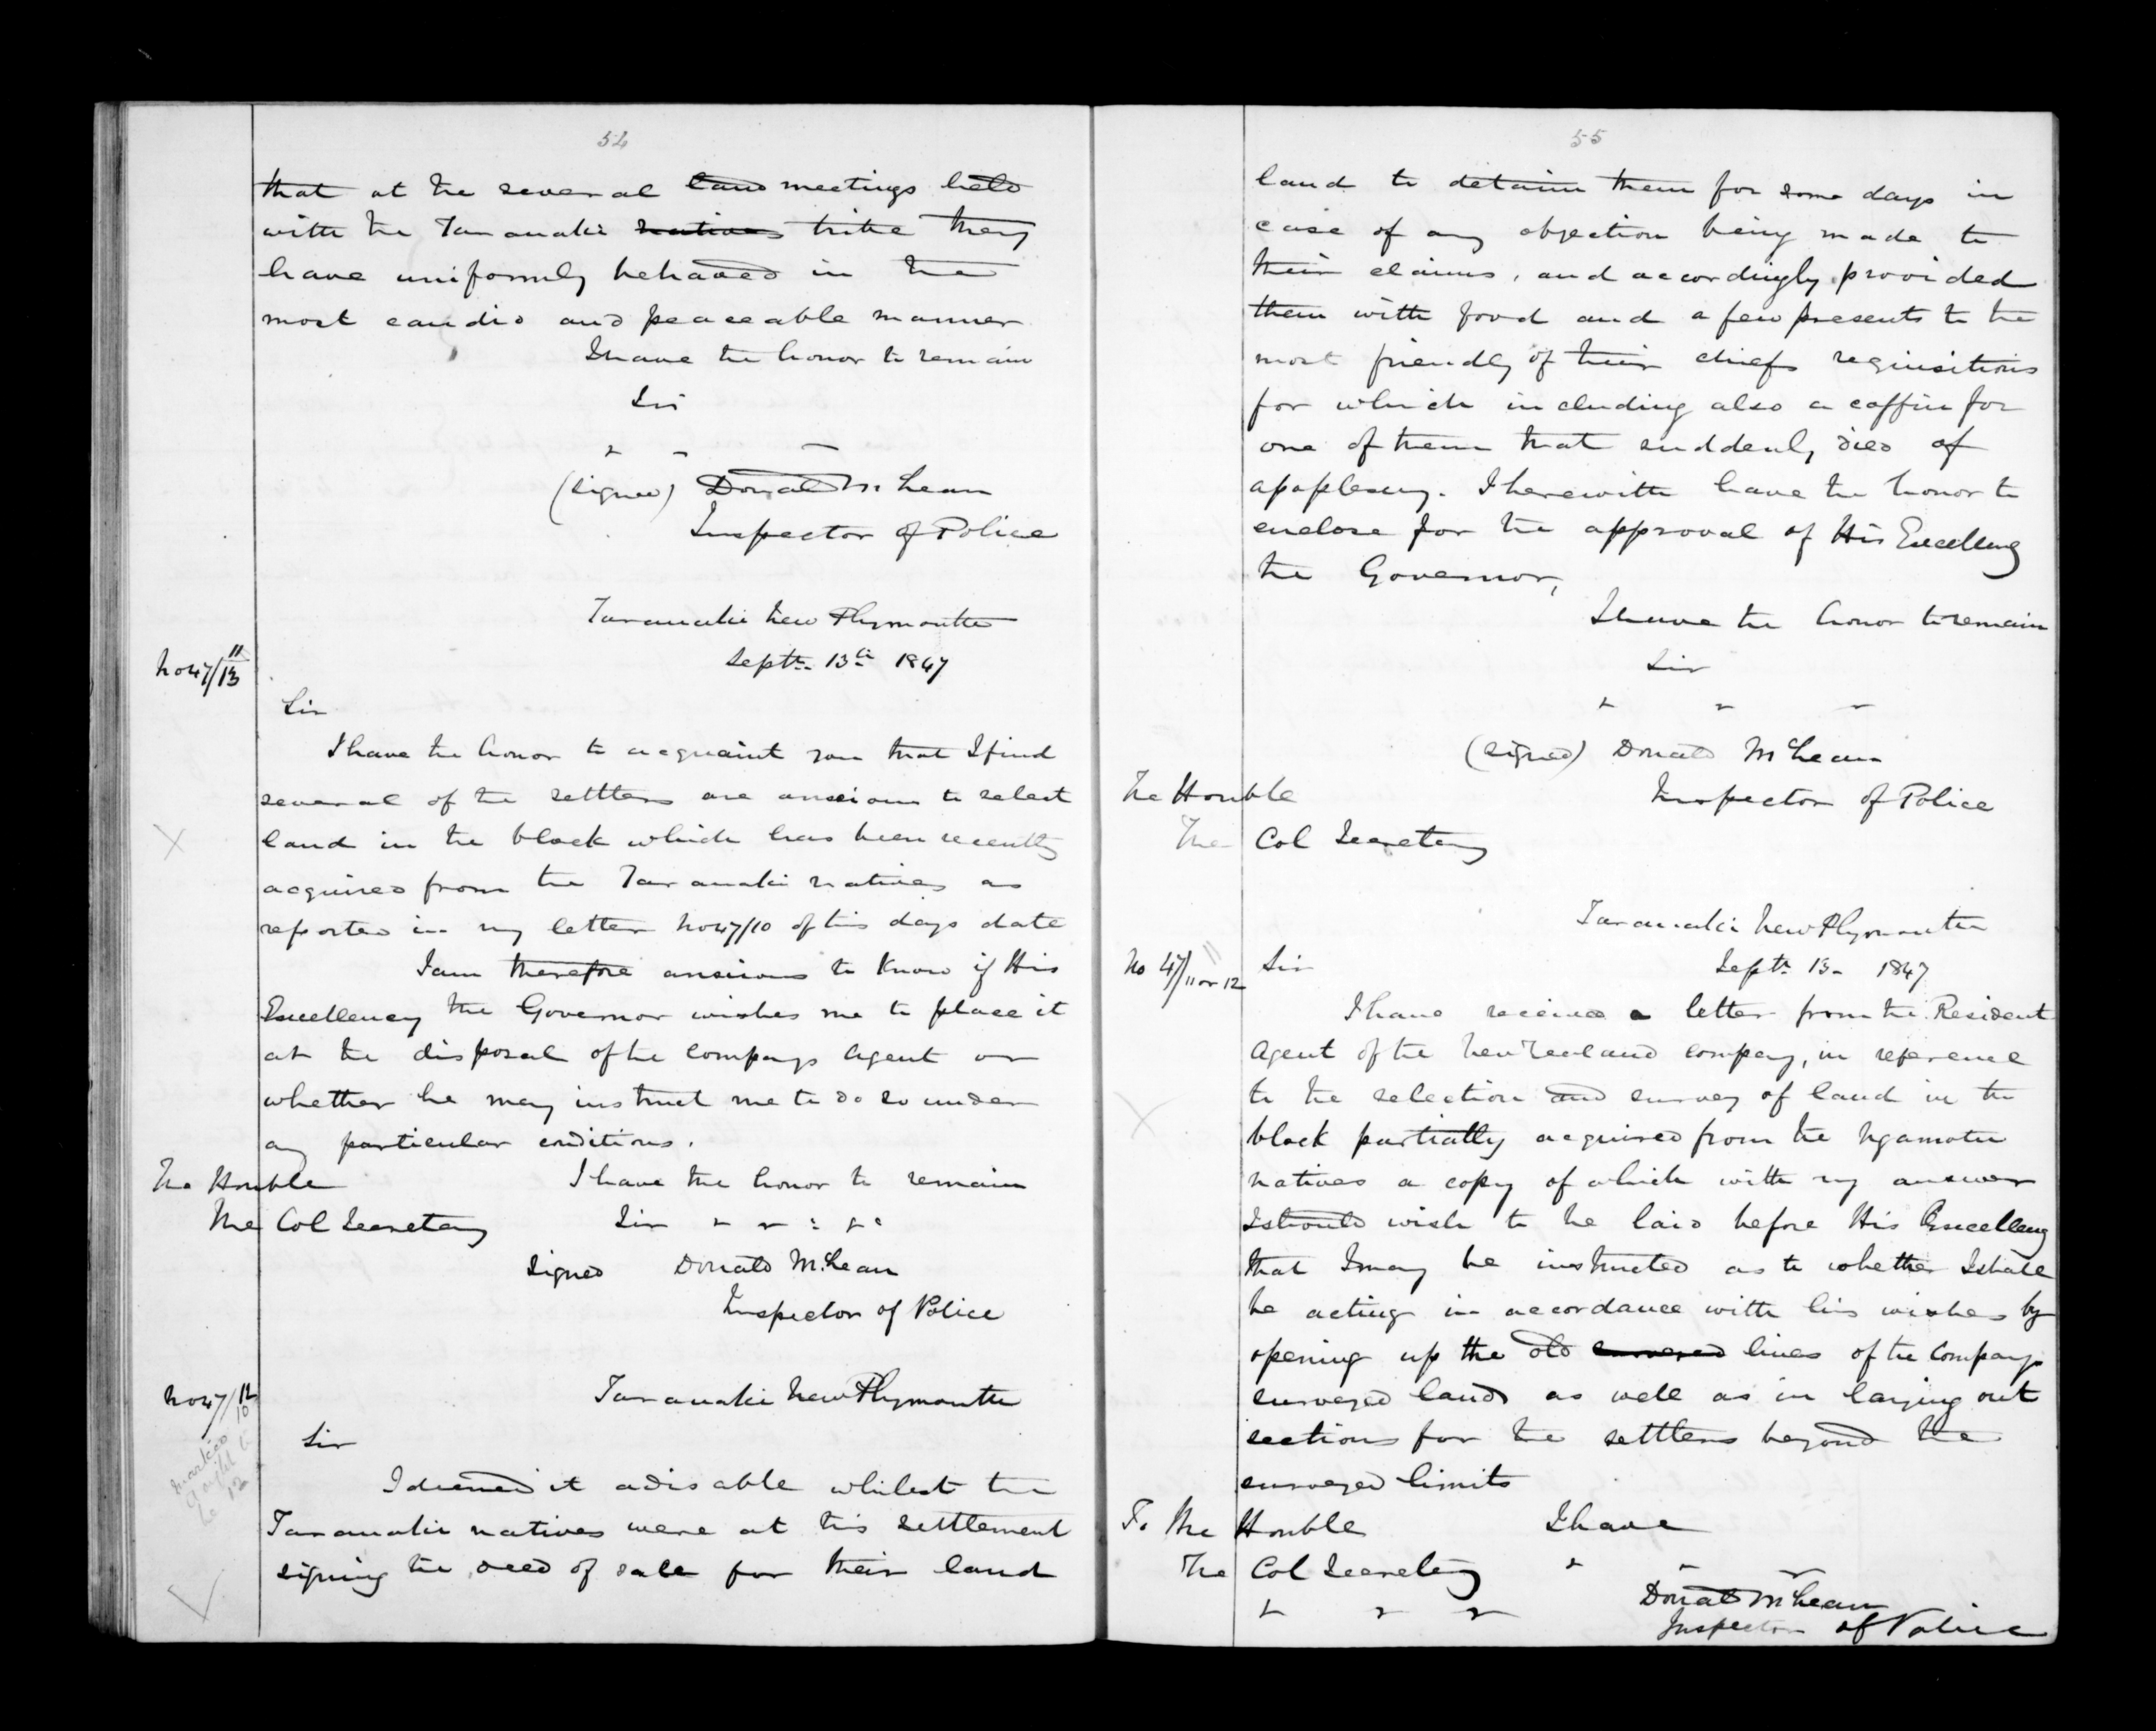 54
that at the several land meetings held
with the Taranaki natives tribe they
have uniformly behaved in the
most candid and peaceable manner
I have the honor to remain
Sir
" " "
(signed) Donald McLean
Inspector of Police
Taranaki New Plymouth
Septr. 13th 1847
No 47/11/13
Sir
I have the honor to acquaint you that I find
several of the settlers are anxious to select
land in the block which has been recently
acquired from the Taranaki natives as
reported in my letter No 47/10 of this days date
I am therefore anxious to know if His
Excellency the Governor wishes me to place it
at the disposal of the Companys Agent or
whether he may instruct me to do so under
any particular conditions.
The Honble I have the honor to remain
The Col Secretary Sir " " " "
Signed Donald McLean
Inspector of Police
No 47/12/10 Taranaki New Plymouth
marked
ought to
be 12
Sir
I deemed it adisable whilest the
Taranaki natives were at this settlement
signing the deed of sale for their land
55
land to detain them for some days in
case of any objection being made to
their claims, and accordingly provided
them with food and a few presents to the
most friendly of their chiefs requisitions
for which including also a coffin for
one of them that suddenly died of
apoplexy. I herewith have the honor to
enclose for the approval of His Excellency
the Governor,
I have the honor to remain
Sir
" " "
(signed) Donald McLean
The Honble Inspector of Police
The Col Secretary
Taranaki New Plymouth
No 47/11 or 12 Sir Septr 13- 1847
11
I have received a letter from the Resident
Agent of the New Zealand Company, in reference
to the selection and survey of land in the
block partially acquired from the Ngamotu
natives a copy of which with my answer
I should wish to be laid before His Excellency
that I may be instructed as to whether I shall
be acting in accordance with his wishes by
opening up the old surveyed lines of the Companys
surveyed lands as well as in laying out
sections for the settlers beyond the
surveyed limits
To the Honble I have
The Col Secretary " " "
" " " Donald McLean
Inspector of Police